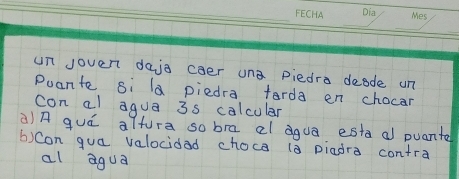 FECHA Día Mes
un joven daja caer una piedra desde un
Puante si la piedra tarda en chocar
con al agua 3s calcular
a) A qué altura sobra al agua esta al puante
b) con qua valocidad choca la piadra contra
al agua